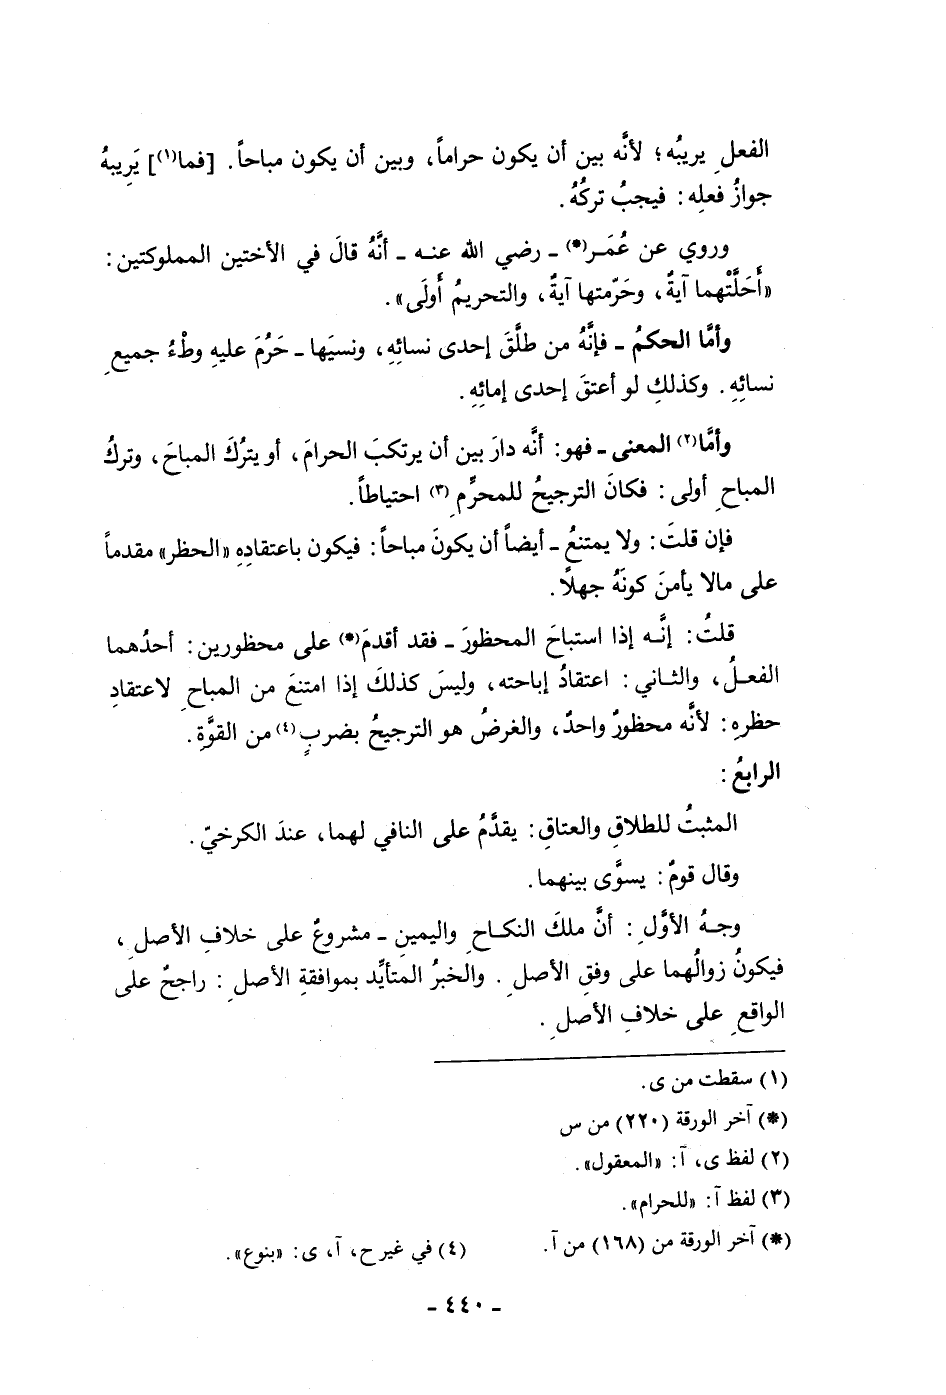 الفعلِ يريبُه؛ لأنَّه بين أن يكون حراماً، وبين أن يكون مباحاً. [فما(١)] يَرِيبهُ
جوازُ فعلِه: فيجبُ تركُهُ.
وروي عن عُمَـر(*) ـ رضي الله عنـه ـ أنَّهُ قالَ في الأختين المملوكتين:
«أَحَلَّتْهما آيةٌ، وحَرّمتها آيةٌ، والتحريمُ أَولَى».
وأمَّا الحكمُ ـ فإنَّهُ من طلَّقَ إحدى نسائِهِ، ونسيَها ـ حَرُمَ عليهِ وطْءُ جميعِ
نسائِهِ. وكذلكِ لو أعتقَ إحدى إمائِهِ.
وأمَّا(٢) المعنى ـ فهو: أنَّه دارَ بين أن يرتكبَ الحرامَ، أو يترُكَ المباحَ، وتركُ
المباحِ أولى: فكانَ الترجيحُ للمحرِّمِ(٣) احتياطاً.
فإن قلتَ: ولا يمتنعُ ـ أيضاً أن يكونَ مباحاً: فيكون باعتقادِهِ «الحظر» مقدماً
على مالا يأمنَ كونَهُ جهلًا.
قلتُ: إنَّـه إذا استباحَ المحظورَ ـ فقد أقدمَ(*) على محظورين: أحدُهما
الفعـلُ، والثـاني: اعتقادُ إباحته، وليسَ كذلكَ إذا امتنعَ من المباحِ لاعتقادِ
حظرِهِ: لأنَّه محظورٌ واحدٌ، والغرضُ هو الترجيحُ بضربٍ(٤) من القوَّةِ.
الرابعُ:
المثبتُ للطلاقِ والعتاقِ: يقدَّمُ على النافي لهما، عندَ الكرخيّ.
وقال قومٌ: يسوَّى بينهما.
وجـهُ الأوَّلِ: أنَّ ملكَ النكـاحِ واليمينِ ـ مشروعٌ على خلافِ الأصلِ،
فيكونُ زوالُهما على وفقِ الأصلِ. والخبرُ المتأيِّد بموافقةِ الأصلِ: راجحٌ على
الواقعِ على خلافِ الأصلِ.
(١) سقطت من ى.
(*) آخر الورقة (٢٢٠) من س
(٢) لفظ ى، آ: «المعقول».
(٣) لفظ آ: «للحرام».
(*) آخر الورقة من (١٦٨) من آ. (٤) في غير ح، آ، ى: «بنوع».
ـ ٤٤٠ ـ